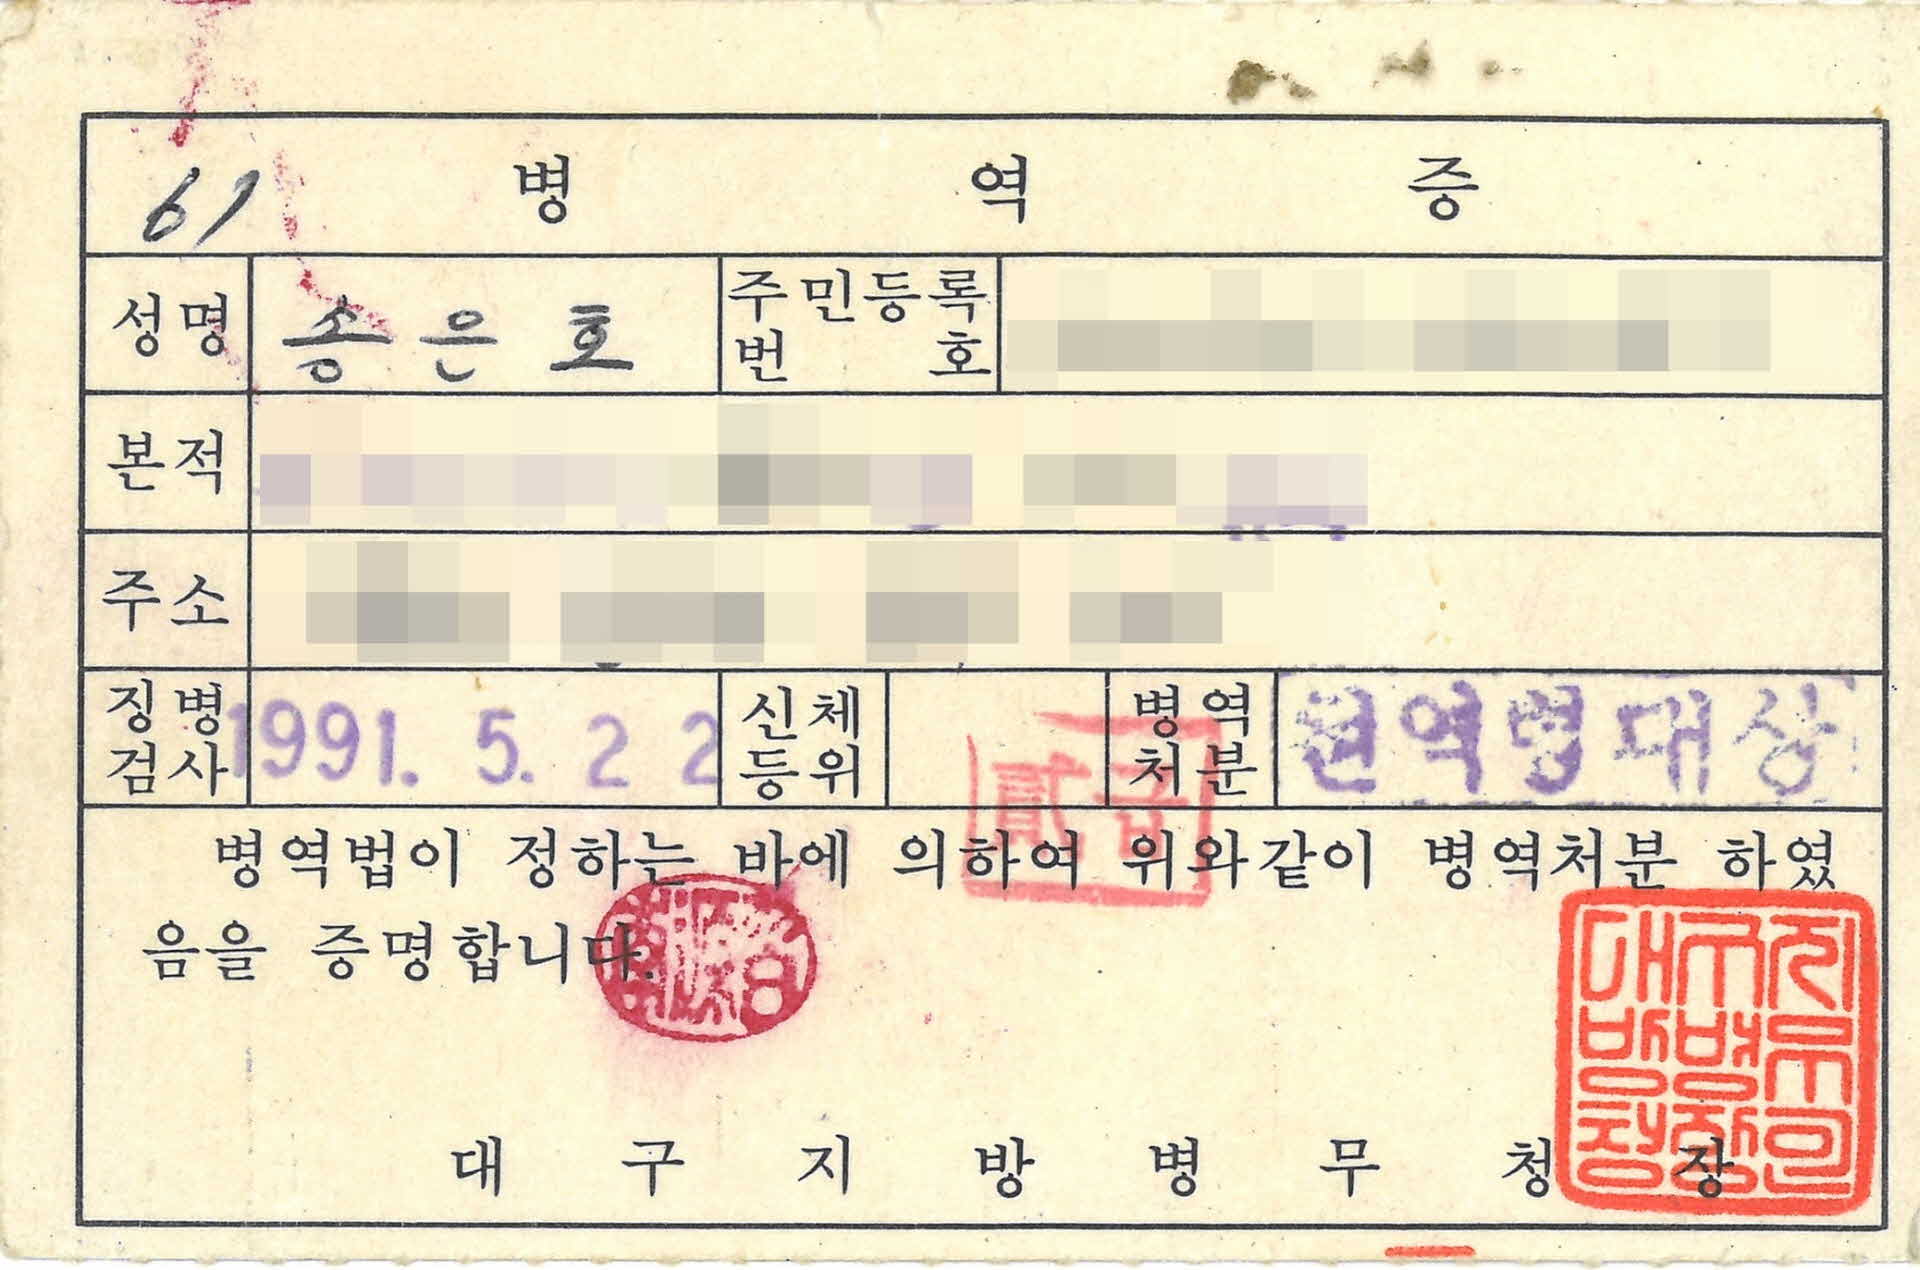 61 병 역 증
성명 송은호 주민등록
번 호
본적
주소
징병 1991. 5. 22 신체 병역 현역병대상
검사 등위 처분
병역법이 정하는 바에 의하여 위와같이 병역처분 하였
음을 증명합니다.
대 구 지 방 병 무 청 장